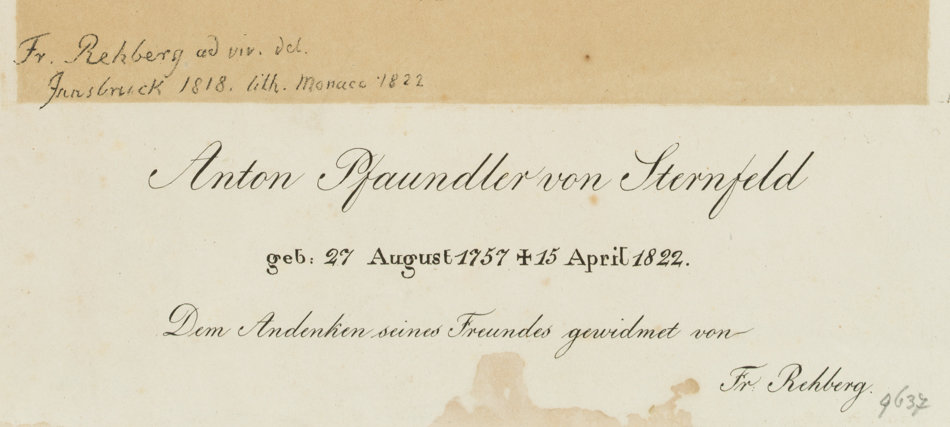 Fr. Rehberg ad viv. del.
Innsbruck 1818. lith. Monaco 1822
Anton Pfaundler von Sternfeld
geb: 27 August 1757 ✠ 15 April 1822.
Dem Andenken seines Freundes gewidmet von
Fr. Rehberg.
9637